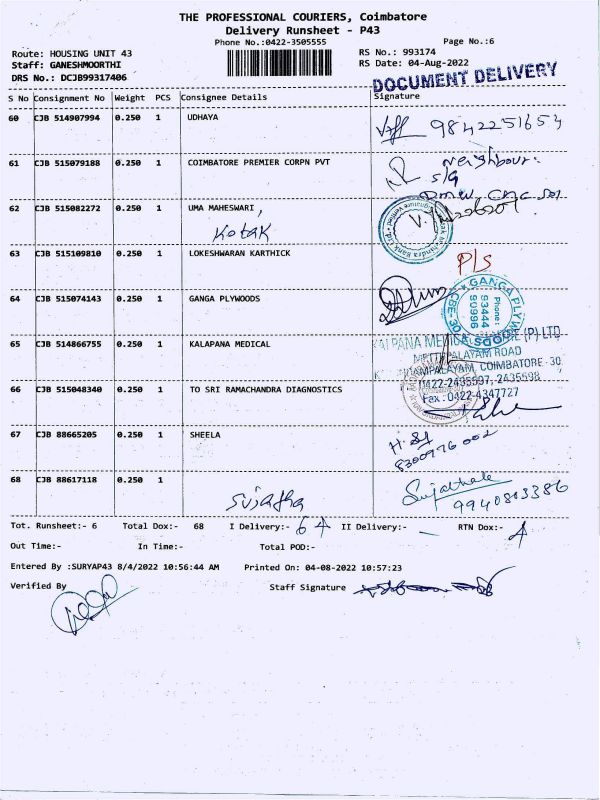 THE PROFESSIONAL COURIERS, Coimbatore
Delivery Runsheet - P43
Phone No.:0422-3505555
Page No.:6
Route: HOUSING UNIT 43
RS No.: 993174
Staff: GANESHMOORTHI
RS Date: 04-Aug-2022
DRS No.: DCJB99317406
DOCUMENT DELIVERY
S No Consignment No Weight PCS Consignee Details Signature
60 CJB 514907994 0.250 1 UDHAYA
9842251654
61 CJB 515079188 0.250 1 COIMBATORE PREMIER CORPN PVT
Neighbour:
62 CJB 515082272 0.250 1 UMA MAHESWARI,
Kotak
63 CJB 515109810 0.250 1 LOKESHWARAN KARTHICK
P/S
64 CJB 515074143 0.250 1 GANGA PLYWOODS
GANGA PLYWOODS
CBE-30
Phone:
93444
90996
65 CJB 514866755 0.250 1 KALAPANA MEDICAL
METTUPALAYAM ROAD
COIMBATORE-30.
66 CJB 515048340 0.250 1 TO SRI RAMACHANDRA DIAGNOSTICS
0422-2435597, 2435598
Fax : 0422-4347727
67 CJB 88665205 0.250 1 SHEELA
8300976002
68 CJB 88617118 0.250 1
Sujatha
9940803386
Tot. Runsheet:- 6 Total Dox:- 68 I Delivery:- 64 II Delivery:- RTN Dox:- 4
Out Time:- In Time:- Total POD:-
Entered By :SURYAP43 8/4/2022 10:56:44 AM Printed On: 04-08-2022 10:57:23
Verified By Staff Signature